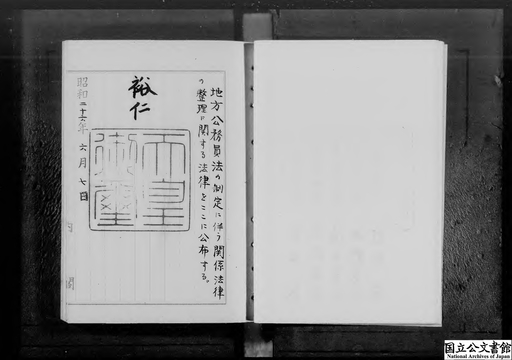 地方公務員法の制定に伴う関係法律
の整理に関する法律をここに公布する。
裕仁
天皇
御璽
昭和二十六年六月七日
内閣
国立公文書館
National Archives of Japan